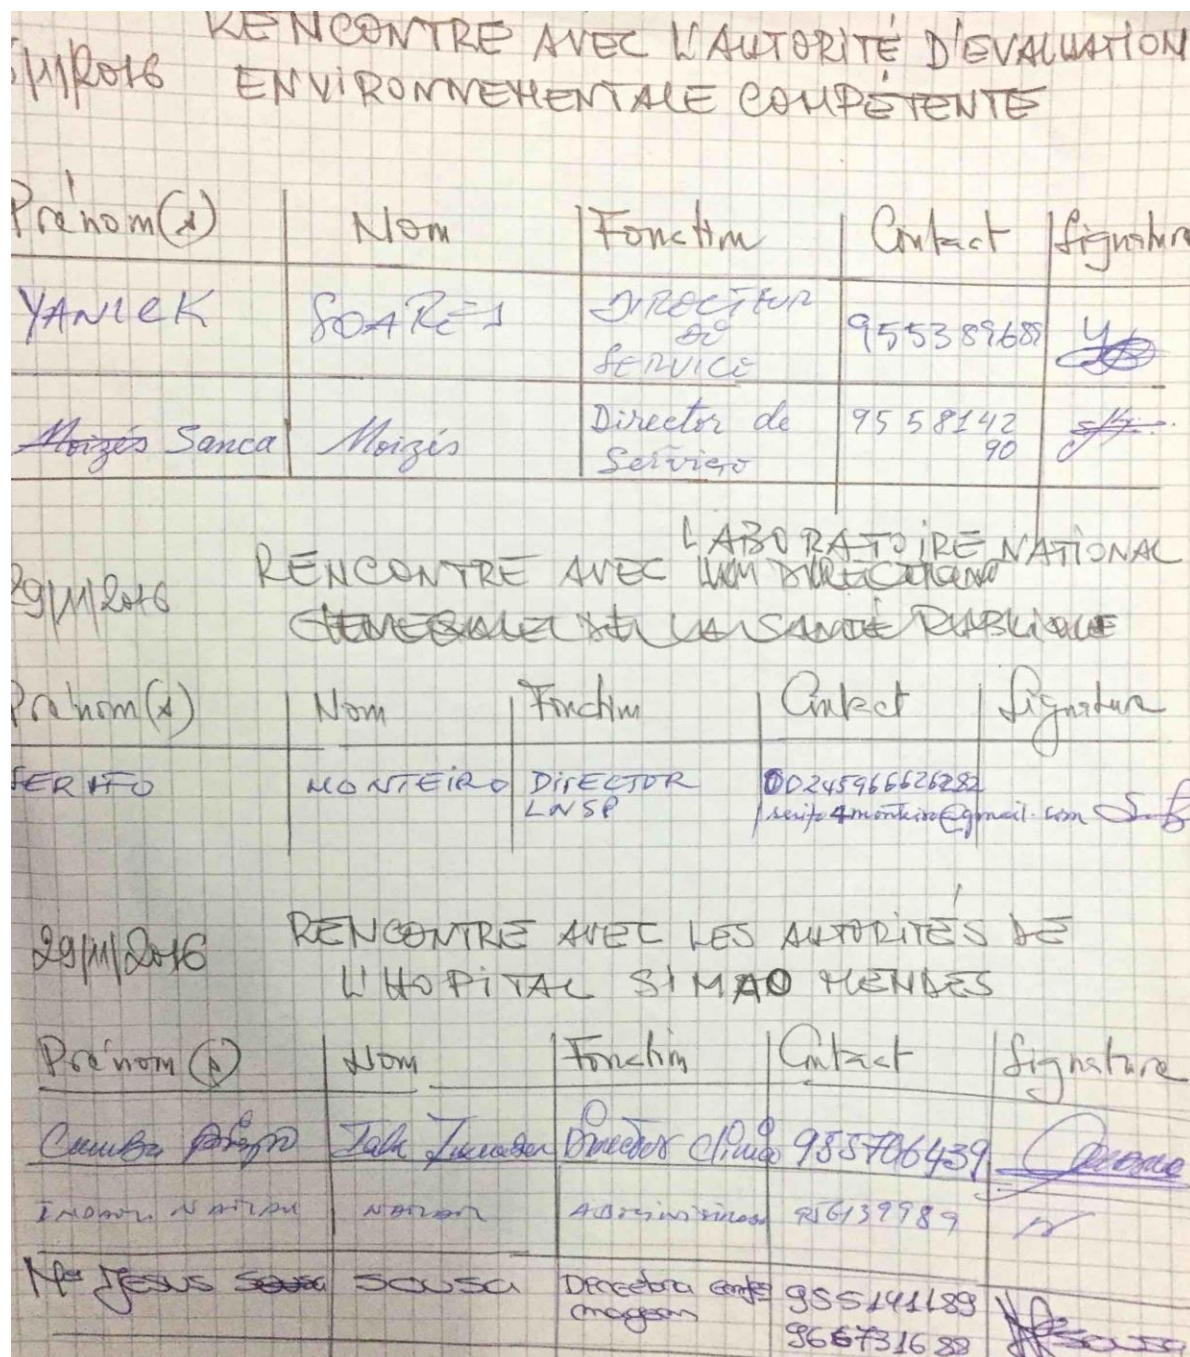 RENCONTRE AVEC L'AUTORITÉ D'EVALUATION
/11/2016 ENVIRONNEMENTALE COMPÉTENTE
Prénom(s) Nom Fonction Contact Signature
YANICK SOARES DIRECTEUR DE SERVICE 955389689
Moizés Sanca Moizés Director de Serviço 955814290
LABORATOIRE NATIONAL
29/11/2016 RENCONTRE AVEC
DE LA SANTÉ PUBLIQUE
Prénom(s) Nom Fonction Contact Signature
SERIFO MONTEIRO DIRECTOR 00245966626282
LNSP serifo4monteiro@gmail.com
29/11/2016 RENCONTRE AVEC LES AUTORITÉS DE
L'HOPITAL SIMAO MENDES
Prénom(s) Nom Fonction Contact Signature
Director 955706439
956139989
Mª Jesus Sousa SOUSA Directora 955141189
966731688